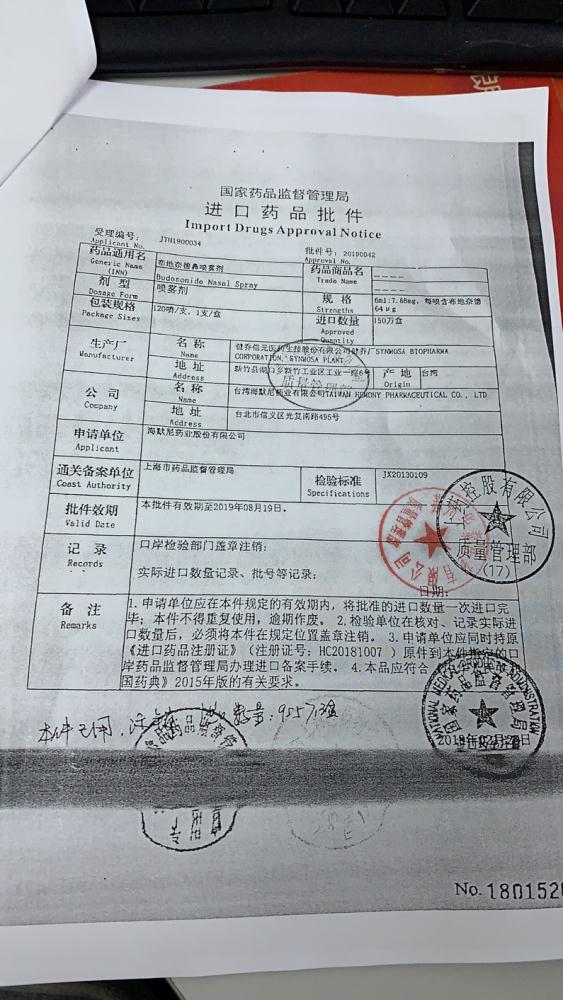 国家药品监督管理局
进口药品批件
Import Drugs Approval Notice
受理编号: JTH1900034 批件号: 20190042
Applicant No. Approval No.
药品通用名 布地奈德鼻喷雾剂 药品商品名 ————
Generic Name (INN) Budosonide Nasal Spray Trade Name ————
剂型 喷雾剂 规格 6ml:7.68mg, 每喷含布地奈德64μg
Dosage Form Strengths
包装规格 120喷/支, 1支/盒 进口数量 150万盒
Package Sizes Approved Quantity
生产厂 名称 健乔信元医药生技股份有限公司健乔厂SYNMOSA BIOPHARMA
Manufacturer Name CORPORATION, SYNMOSA PLANT
地址 新竹县湖口乡新竹工业区工业一路6号 产地 台湾
Address Origin
公司 名称 台湾海默尼药业有限公司TAIWAN HEMONY PHARMACEUTICAL CO., LTD
Company Name
地址 台北市信义区光复南路495号
Address
申请单位 海默尼药业股份有限公司
Applicant
通关备案单位 上海市药品监督管理局 检验标准 JX20130109
Coast Authority Specifications
批件效期 本批件有效期至2019年08月19日。
Valid Date
记录 口岸检验部门盖章注销:
Records 实际进口数量记录、批号等记录:
日期:
备注 1. 申请单位应在本件规定的有效期内, 将批准的进口数量一次进口完
Remarks 毕; 本件不得重复使用, 逾期作废。 2. 检验单位在核对、记录实际进
口数量后, 必须将本件在规定位置盖章注销。 3. 申请单位应同时持原
《进口药品注册证》(注册证号: HC20181007 ) 原件到本件指定的口
岸药品监督管理局办理进口备案手续。 4. 本品应符合
国药典》2015年版的有关要求。
控股有限公司
质量管理部
(17)
质量管理部
NATIONAL MEDICAL PRODUCTS ADMINISTRATION
国家药品监督管理局
本件已用, 数量: 955万盒
No. 1801520